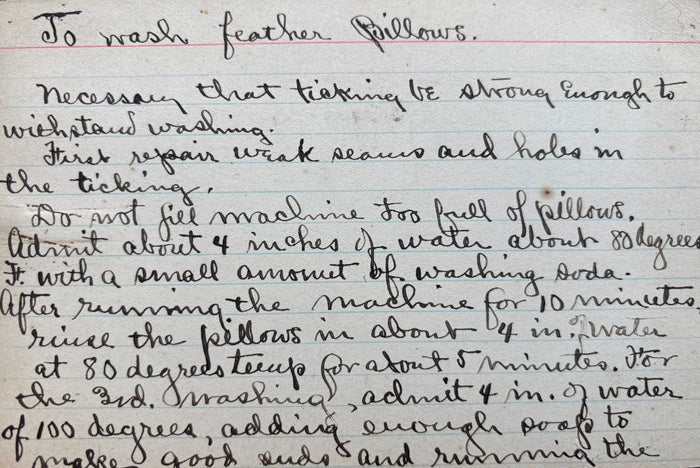 To wash feather Pillows.
Necessary that ticking be strong enough to
withstand washing.
First repair weak seams and holes in
the ticking.
Do not fill machine too full of pillows.
Admit about 4 inches of water about 80 degrees
Ft. with a small amount of washing soda.
After running the machine for 10 minutes.
rinse the pillows in about 4 in. of water
at 80 degrees temp for about 5 minutes. For
the 3rd. washing, admit 4 in. of water
of 100 degrees, adding enough soap to
make good suds and running the